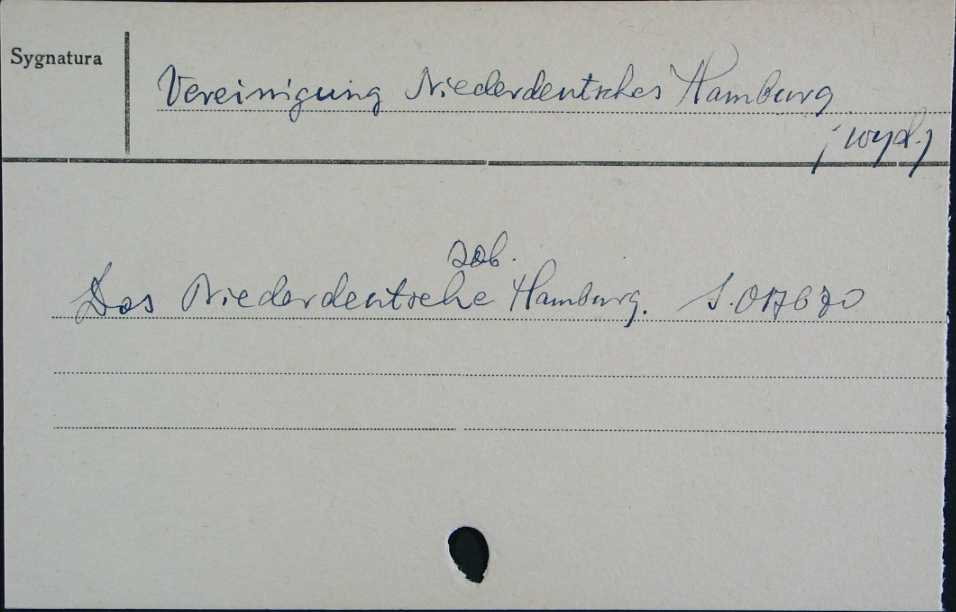 Sygnatura
Vereinigung Niederdeutsches Hamburg
/wyd./
zob.
Das Niederdeutsche Hamburg. S. 017670